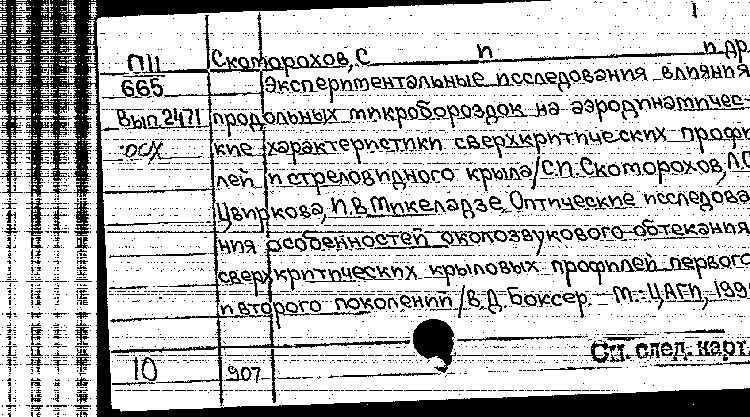 1
П11 Скоморохов, С П и др
665 Экспериментальные исследования влияния
Вып. 2471 продольных микробороздок на аэродинамичес-
кие характеристики сверхкритических профи
лей и стреловидного крыла/С.П. Скоморохов, Л.С.
Цвиркова, И.В. Микеладзе. Оптические исследова
ния особенностей околозвукового обтекания
сверхкритических крыловых профилей первого
и второго поколений/В.Д. Боксер. - М.: ЦАГИ, 199
См. след. карт.
10 907